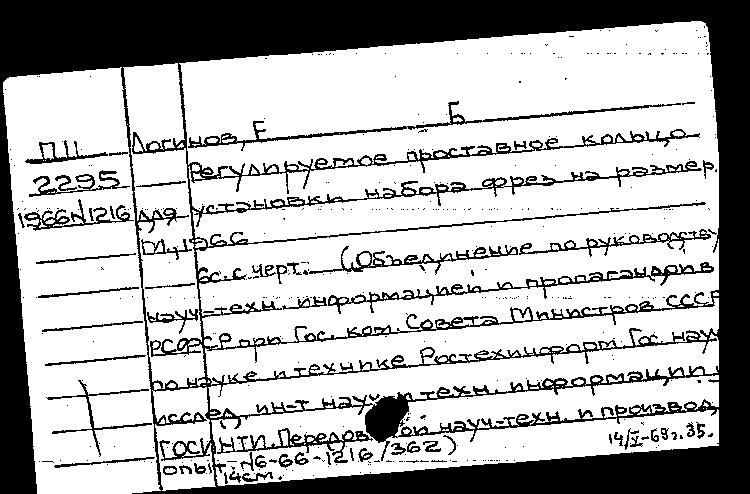 Б
П11 Логинов, Е
Регулируемое проставное кольцо
2295
1966N1216 для установки набора фрез на размер.
М., 1966
6с. с черт. (Объединение по руководству
науч-техн. информацией и пропагандой в
РСФСР при Гос. ком. Совета Министров СССР
по науке и технике Ростехинформ. Гос. науч
исслед. ин-т науч. и техн. информации
ГОСИНТИ. Передовой науч-техн. и производ.
опыт. N6-66-1216/362)
14см.
14/V-68г. 35.